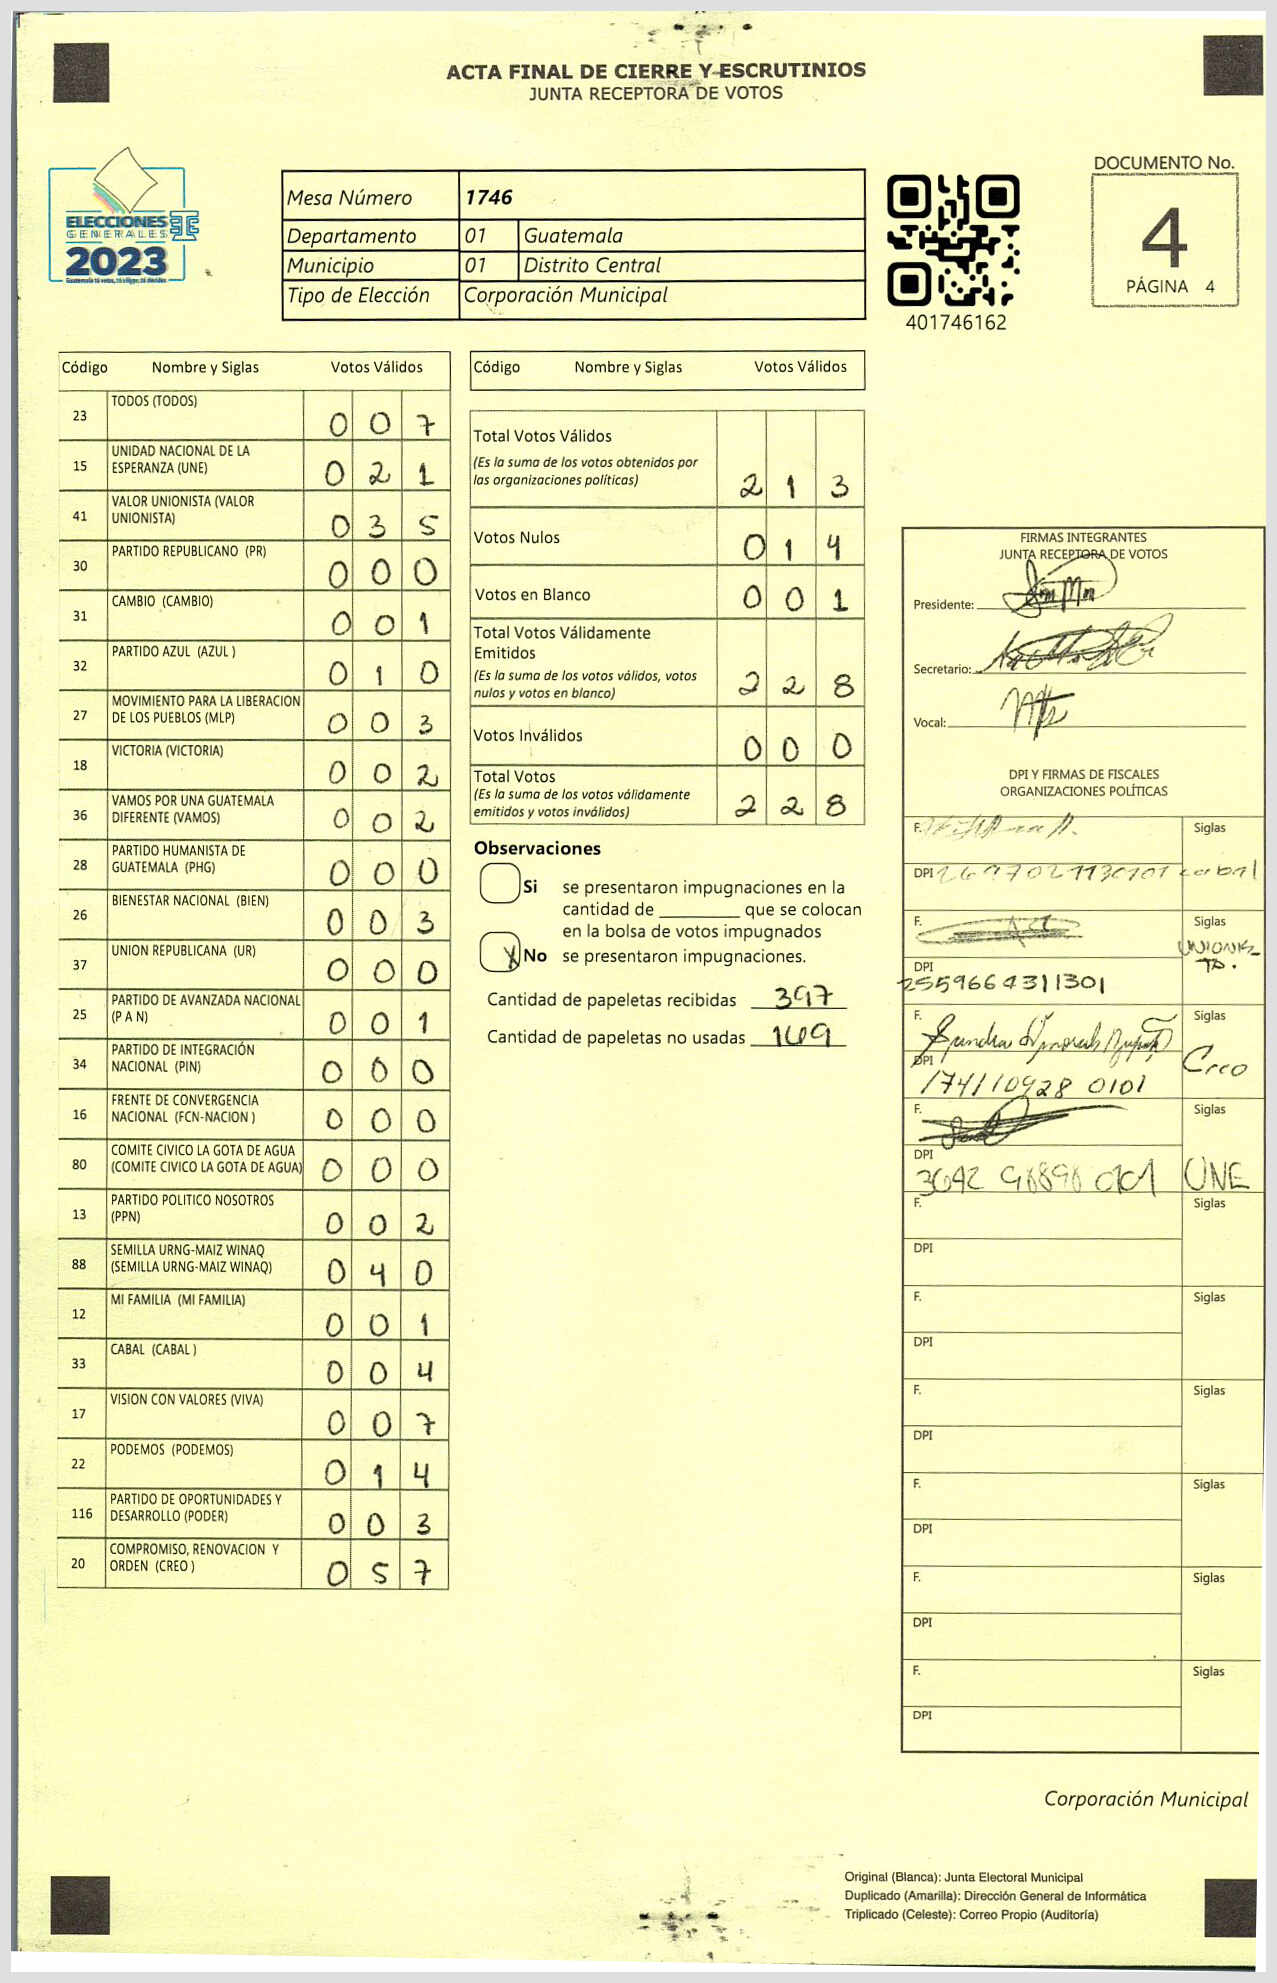 ACTA FINAL DE CIERRE Y ESCRUTINIOS
JUNTA RECEPTORA DE VOTOS
ELECCIONES
GENERALES
2023
Mesa Número 1746
Departamento 01 Guatemala
Municipio 01 Distrito Central
Tipo de Elección Corporación Municipal
401746162
DOCUMENTO No.
4
PÁGINA 4
Código Nombre y Siglas Votos Válidos
23 TODOS (TODOS) 0 0 7
15 UNIDAD NACIONAL DE LA
ESPERANZA (UNE) 0 2 1
41 VALOR UNIONISTA (VALOR
UNIONISTA) 0 3 5
30 PARTIDO REPUBLICANO (PR) 0 0 0
31 CAMBIO (CAMBIO) 0 0 1
32 PARTIDO AZUL (AZUL ) 0 1 0
27 MOVIMIENTO PARA LA LIBERACION
DE LOS PUEBLOS (MLP) 0 0 3
18 VICTORIA (VICTORIA) 0 0 2
36 VAMOS POR UNA GUATEMALA
DIFERENTE (VAMOS) 0 0 2
28 PARTIDO HUMANISTA DE
GUATEMALA (PHG) 0 0 0
26 BIENESTAR NACIONAL (BIEN) 0 0 3
37 UNION REPUBLICANA (UR) 0 0 0
25 PARTIDO DE AVANZADA NACIONAL
(P A N) 0 0 1
34 PARTIDO DE INTEGRACIÓN
NACIONAL (PIN) 0 0 0
16 FRENTE DE CONVERGENCIA
NACIONAL (FCN-NACION ) 0 0 0
80 COMITE CIVICO LA GOTA DE AGUA
(COMITE CIVICO LA GOTA DE AGUA) 0 0 0
13 PARTIDO POLITICO NOSOTROS
(PPN) 0 0 2
88 SEMILLA URNG-MAIZ WINAQ
(SEMILLA URNG-MAIZ WINAQ) 0 4 0
12 MI FAMILIA (MI FAMILIA) 0 0 1
33 CABAL (CABAL ) 0 0 4
17 VISION CON VALORES (VIVA) 0 0 7
22 PODEMOS (PODEMOS) 0 1 4
116 PARTIDO DE OPORTUNIDADES Y
DESARROLLO (PODER) 0 0 3
20 COMPROMISO, RENOVACION Y
ORDEN (CREO ) 0 5 7
Código Nombre y Siglas Votos Válidos
Total Votos Válidos
(Es la suma de los votos obtenidos por
las organizaciones políticas) 2 1 3
Votos Nulos 0 1 4
Votos en Blanco 0 0 1
Total Votos Válidamente
Emitidos
(Es la suma de los votos válidos, votos
nulos y votos en blanco) 2 2 8
Votos Inválidos 0 0 0
Total Votos
(Es la suma de los votos válidamente
emitidos y votos inválidos) 2 2 8
Observaciones
Si se presentaron impugnaciones en la
cantidad de ________ que se colocan
en la bolsa de votos impugnados
X No se presentaron impugnaciones.
Cantidad de papeletas recibidas 397
Cantidad de papeletas no usadas 169
FIRMAS INTEGRANTES
JUNTA RECEPTORA DE VOTOS
Presidente:
Secretario:
Vocal:
DPI Y FIRMAS DE FISCALES
ORGANIZACIONES POLÍTICAS
F. Siglas
DPI cabal
F. Siglas
UNIONIS-
TA.
DPI
2559664311301
F. Sandra Siglas
DPI Creo
174110928 0101
F. Siglas
DPI
UNE
F. Siglas
DPI
F. Siglas
DPI
F. Siglas
DPI
F. Siglas
DPI
F. Siglas
DPI
F. Siglas
DPI
Corporación Municipal
Original (Blanca): Junta Electoral Municipal
Duplicado (Amarilla): Dirección General de Informática
Triplicado (Celeste): Correo Propio (Auditoría)